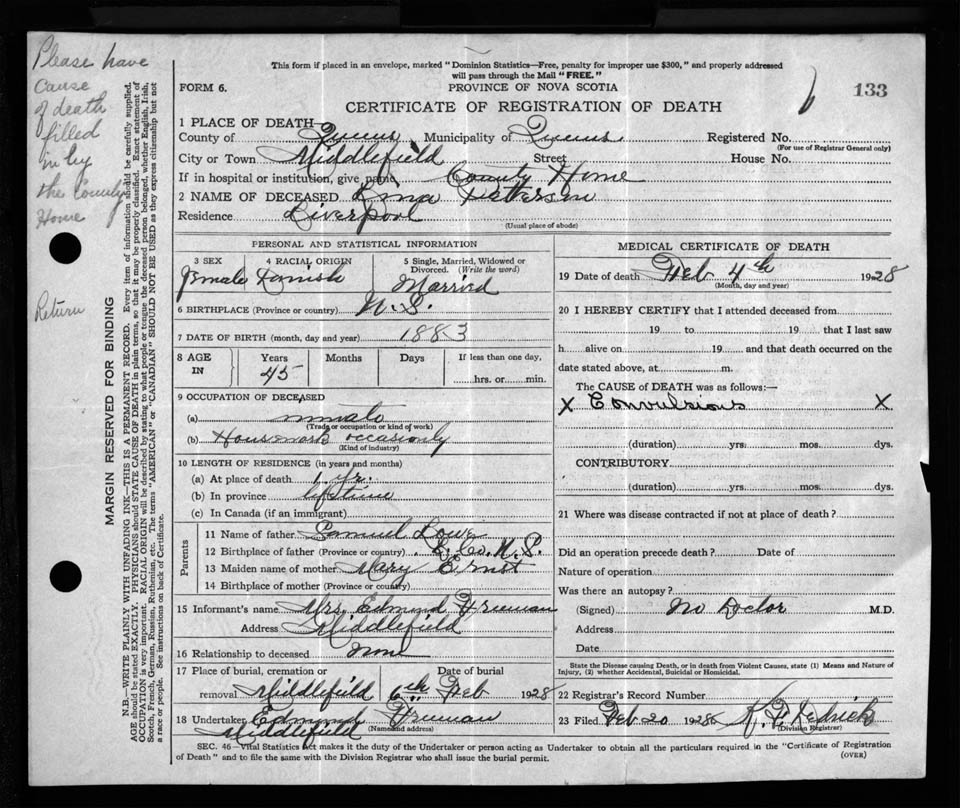 Please have
cause
of death
filled
in by
the County
Home
Return
MARGIN RESERVED FOR BINDING
N.B.—WRITE PLAINLY WITH UNFADING INK—THIS IS A PERMANENT RECORD. Every item of information should be carefully supplied.
AGE should be stated EXACTLY. PHYSICIANS should STATE CAUSE OF DEATH in plain terms, so that it may be properly classified. Exact statement of
OCCUPATION is very important. RACIAL ORIGIN will be described by stating to what people or tongue the deceased person belonged, whether English, Irish,
Scotch, French, German, Russian, Ruthenian, etc. The terms "AMERICAN" or "CANADIAN" SHOULD NOT BE USED as they express citizenship but not
a race or people. See instructions on back of Certificate.
This form if placed in an envelope, marked "Dominion Statistics—Free, penalty for improper use $300," and properly addressed
will pass through the Mail "FREE."
FORM 6. PROVINCE OF NOVA SCOTIA 133
CERTIFICATE OF REGISTRATION OF DEATH
1 PLACE OF DEATH—
County of Queens Municipality of Queens Registered No.
(For use of Registrar General only)
City or Town Middlefield Street House No.
If in hospital or institution, give name County Home
2 NAME OF DECEASED Patterson
Residence Liverpool
(Usual place of abode)
PERSONAL AND STATISTICAL INFORMATION
3 SEX 4 RACIAL ORIGIN 5 Single, Married, Widowed or
Divorced. (Write the word)
female Danish Married
6 BIRTHPLACE (Province or country) N. S.
7 DATE OF BIRTH (month, day and year) 1883
8 AGE IN Years Months Days If less than one day,
45 hrs. or min.
9 OCCUPATION OF DECEASED
(a) inmate
(Trade or occupation or kind of work)
(b) Housework occasionly
(Kind of industry)
10 LENGTH OF RESIDENCE (in years and months)
(a) At place of death 1 yr.
(b) In province lifetime
(c) In Canada (if an immigrant)
Parents
11 Name of father Samuel Lowe
12 Birthplace of father (Province or country) Co. N. S.
13 Maiden name of mother Mary Ernst
14 Birthplace of mother (Province or country)
15 Informant's name Mrs. Edmund Freeman
Address Middlefield
16 Relationship to deceased none
17 Place of burial, cremation or Date of burial
removal Middlefield 6th Feb 1928
18 Undertaker Edmund Freeman
Middlefield (Name and address)
MEDICAL CERTIFICATE OF DEATH
19 Date of death Feb 4th 1928
(Month, day and year)
20 I HEREBY CERTIFY that I attended deceased from
19 to 19 that I last saw
h alive on 19 and that death occurred on the
date stated above, at m.
The CAUSE of DEATH was as follows:—
X Convulsions X
(duration) yrs. mos. dys.
CONTRIBUTORY
(duration) yrs. mos. dys.
21 Where was disease contracted if not at place of death?
Did an operation precede death? Date of
Nature of operation
Was there an autopsy?
(Signed) No Doctor M.D.
Address
Date
State the Disease causing Death, or in death from Violent Causes, state (1) Means and Nature of
Injury, (2) whether Accidental, Suicidal or Homicidal.
22 Registrar's Record Number
23 Filed Feb 20 1928
(Division Registrar)
SEC. 46—Vital Statistics Act makes it the duty of the Undertaker or person acting as Undertaker to obtain all the particulars required in the "Certificate of Registration
of Death" and to file the same with the Division Registrar who shall issue the burial permit. (OVER)